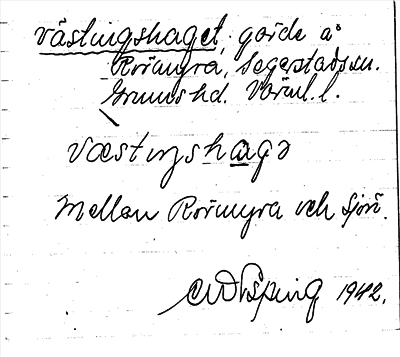 västingshaget, gärde å
Rörmyra, Segerstads sn.
Grums hd. Värml. l.
væstiŋshagə
Mellan Rörmyra och Sjön.
1942.